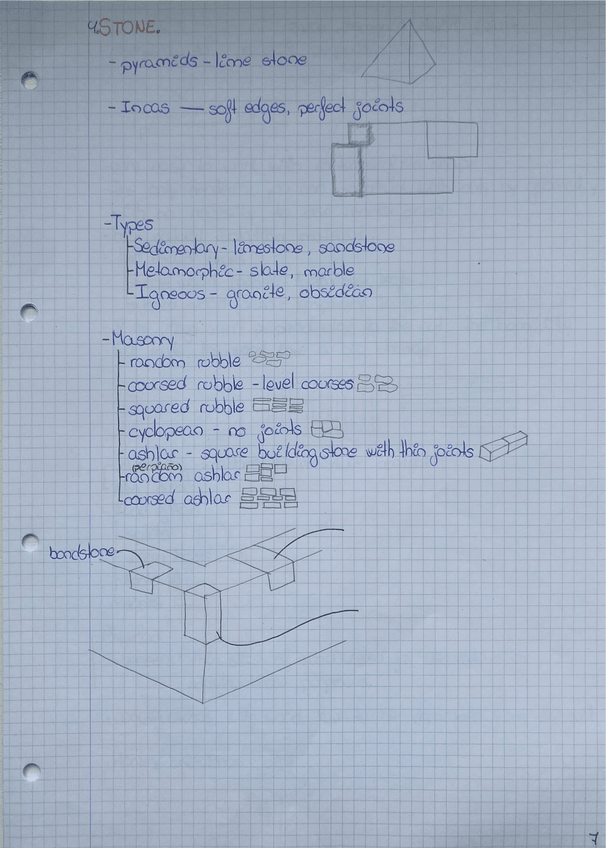 4. STONE.
- pyramids - lime stone
- Incas — soft edges, perfect joints
- Types
Sedimentary - limestone, sandstone
Metamorphic - slate, marble
Igneous - granite, obsidian
- Masonry
random rubble
coursed rubble - level courses
squared rubble
cyclopean - no joints
ashlar - square building stone with thin joints
random ashlar
coursed ashlar
bondstone
7